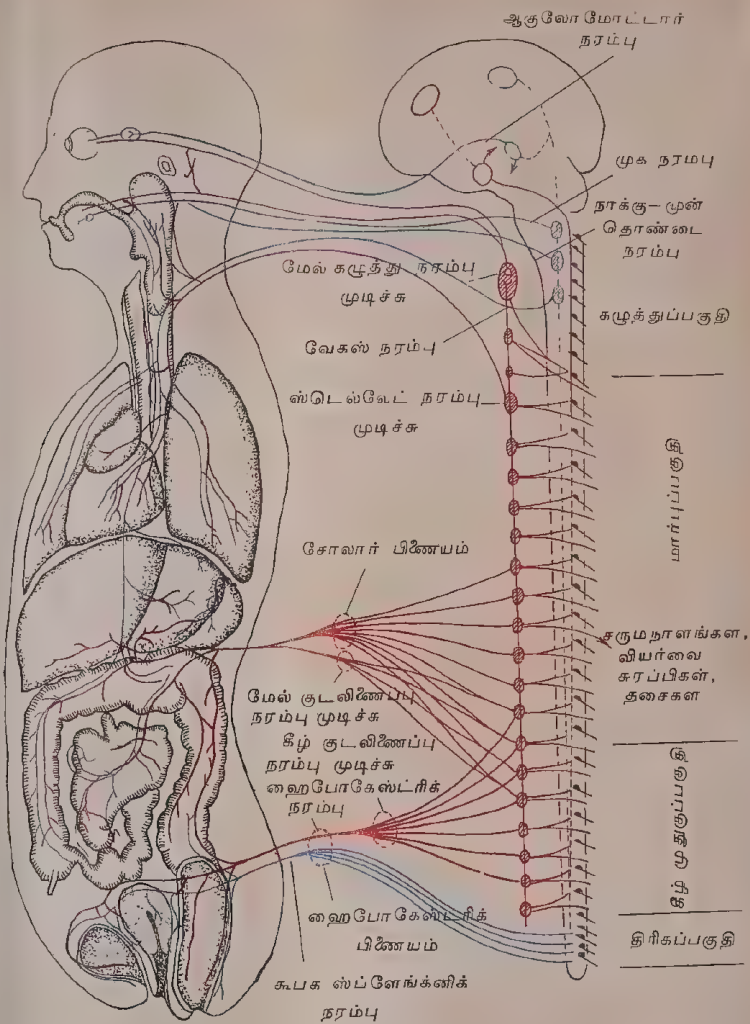 ஆகுலோமோட்டார்
நரம்பு
முக நரமபு
நாக்கு-முன்
தொண்டை
நரம்பு
மேல் கழுத்து நரம்பு
முடிச்சு
கழுத்துப்பகுதி
வேகஸ் நரம்பு
ஸ்டெல்லேட் நரம்பு
முடிச்சு
மார்புப்பகுதி
சோலார் பிணையம்
சருமநாளங்கள,
வியர்வை
சுரப்பிகள்,
தசைகள
மேல் குடலிணைப்பு
நரம்பு முடிச்சு
கீழ் குடலிணைப்பு
நரம்பு முடிச்சு
ஹைபோகேஸ்ட்ரிக்
நரம்பு
கீழ் முதுகுப்பகுதி
ஹைபோகேஸ்ட்ரிக்
பிணையம்
திரிகப்பகுதி
கூபக ஸ்ப்ளேங்க்னிக்
நரம்பு